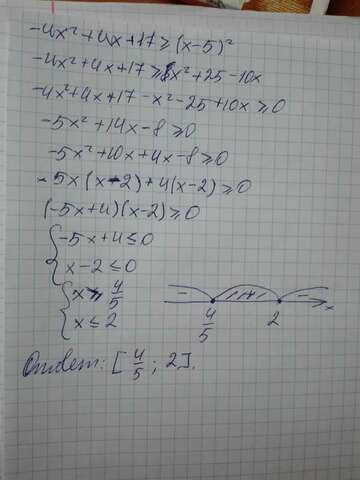 -4x² + 4x + 17 ≥ (x-5)²
-4x² + 4x + 17 ≥ x² + 25 - 10x
-4x² + 4x + 17 - x² - 25 + 10x ≥ 0
-5x² + 14x - 8 ≥ 0
-5x² + 10x + 4x - 8 ≥ 0
-5x(x-2) + 4(x-2) ≥ 0
(-5x+4)(x-2) ≥ 0
{ -5x + 4 ≤ 0
x - 2 ≤ 0
{ x ≥ 4/5
x ≤ 2
- + -
4/5 2 x
Ответ: [4/5; 2].